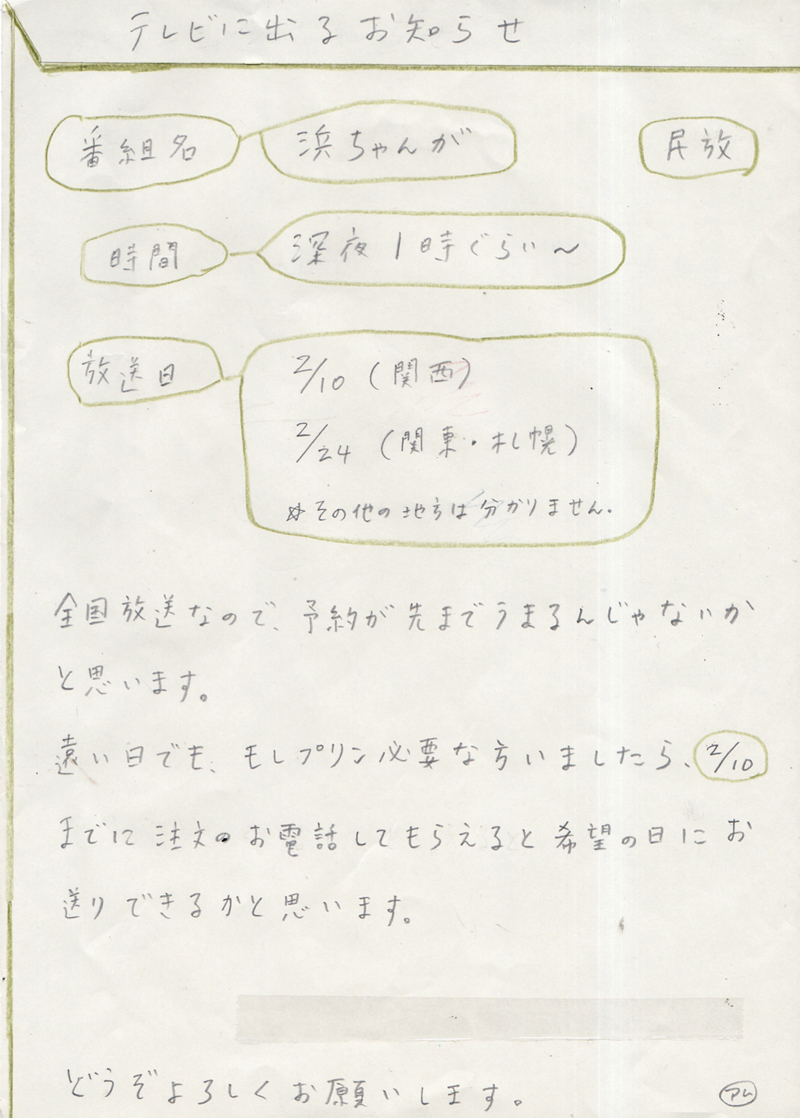 テレビに出るお知らせ
番組名 浜ちゃんが 民放
時間 深夜1時ぐらい〜
放送日 2/10(関西)
2/24(関東・札幌)
☆その他の地方は分かりません.
全国放送なので、予約が先までうまるんじゃないか
と思います。
遠い日でも、もしプリン必要な方いましたら、2/10
までに注文のお電話してもらえると希望の日にお
送りできるかと思います。
どうぞよろしくお願いします。 アム